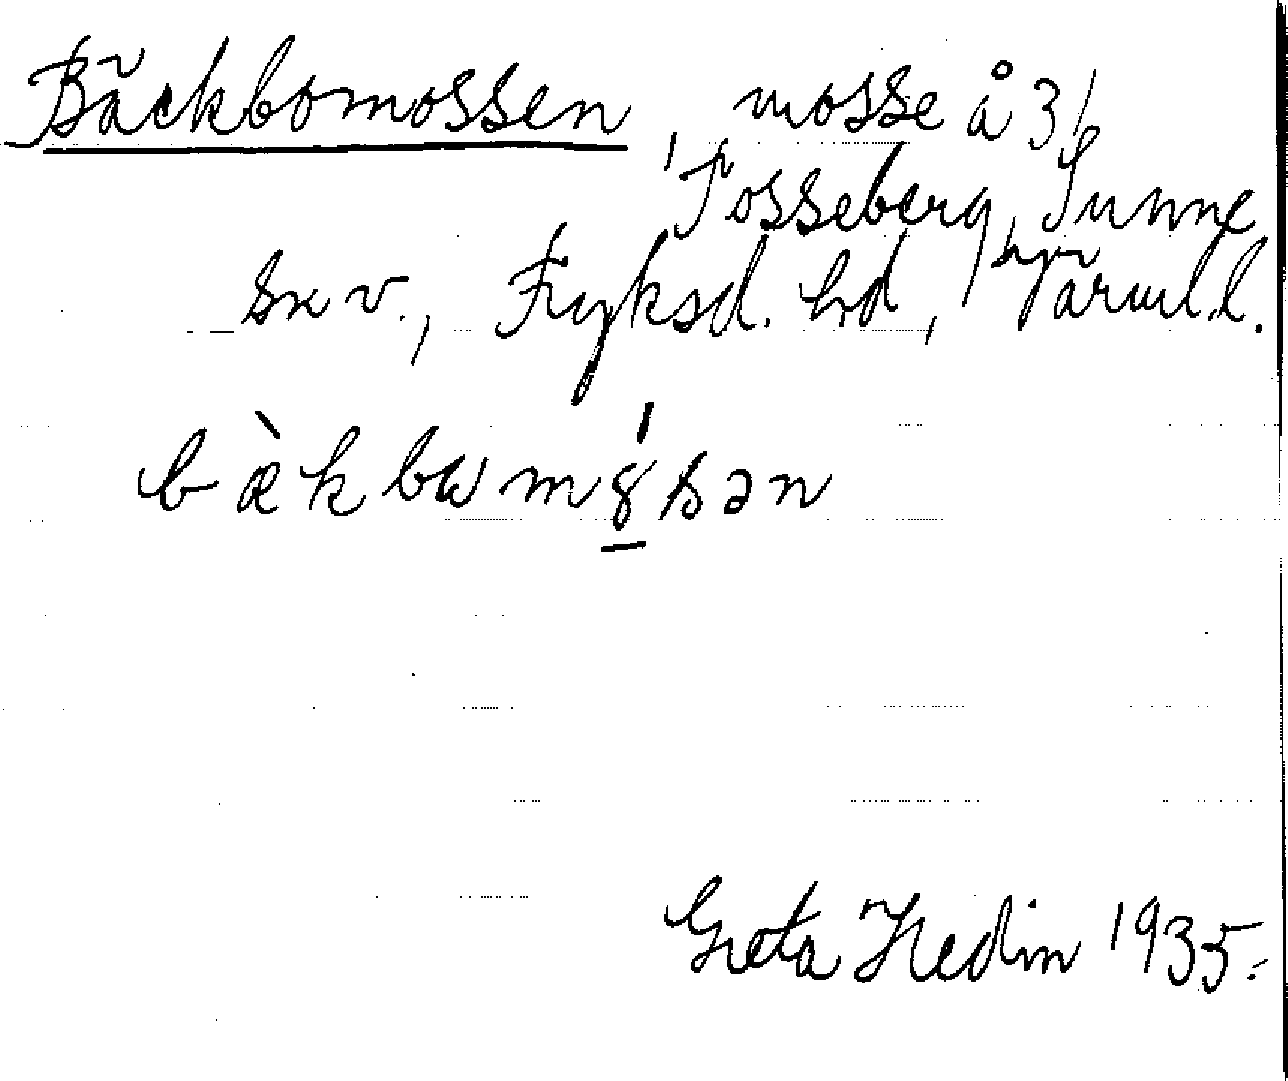 Bäckbomossen, mosse å 3/
Tosseberg, Sunne
sn v., Fryksd. hd, Värml.l.
bæ̀kbωmɞ́sən
Greta Hedin 1935.